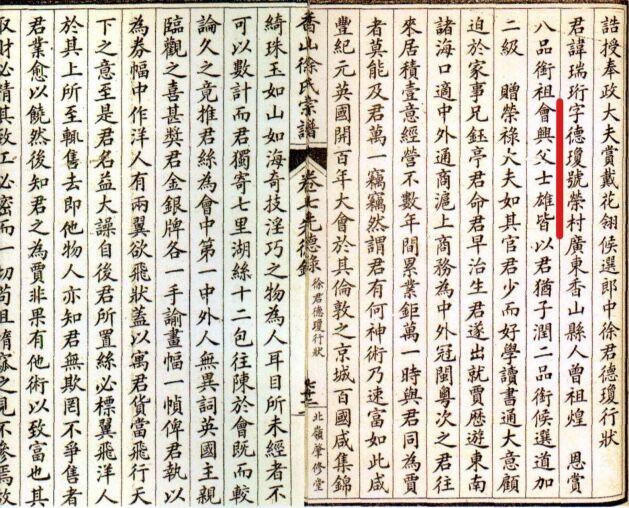 誥授奉政大夫賞戴花翎候選郎中徐君德瓊行狀
君諱瑞珩字德瓊號榮村廣東香山縣人曾祖煌　恩賞
八品銜祖會興父士雄皆以君猶子潤二品銜候選道加
二級　贈榮祿大夫如其官君少而好學讀書通大意顧
迫於家事兄鈺亭君命君早治生君遂出就賈歷遊東南
諸海口適中外通商滬上商務為中外冠閩粵次之君往
來居積壹意經營不數年間累業鉅萬一時與君同為賈
者莫能及君萬一竊竊然謂君有何神術乃速富如此咸
豐紀元英國開百年大會於其倫敦之京城百國咸集錦
香山徐氏宗譜　卷七先德錄　徐君德瓊行狀　北嶺肇修堂
綺珠玉如山如海奇技淫巧之物為人耳目所未經者不
可以數計而君獨寄七里湖絲十二包往陳於會既而較
論久之竟推君絲為會中第一中外人無異詞英國主親
臨觀之喜甚獎君金銀牌各一手諭畫幅一幀俾君執以
為券幅中作洋人有兩翼欲飛狀蓋以寓君貨當飛行天
下之意至是君名益大譟自後君所置絲必標翼飛洋人
於其上所至輒售去即他物人亦知君無欺罔不爭售者
君業愈以饒然後知君之為賈非果有他術以致富也其
取財必精其致工必密而一切苟且惰窳之見不參焉故